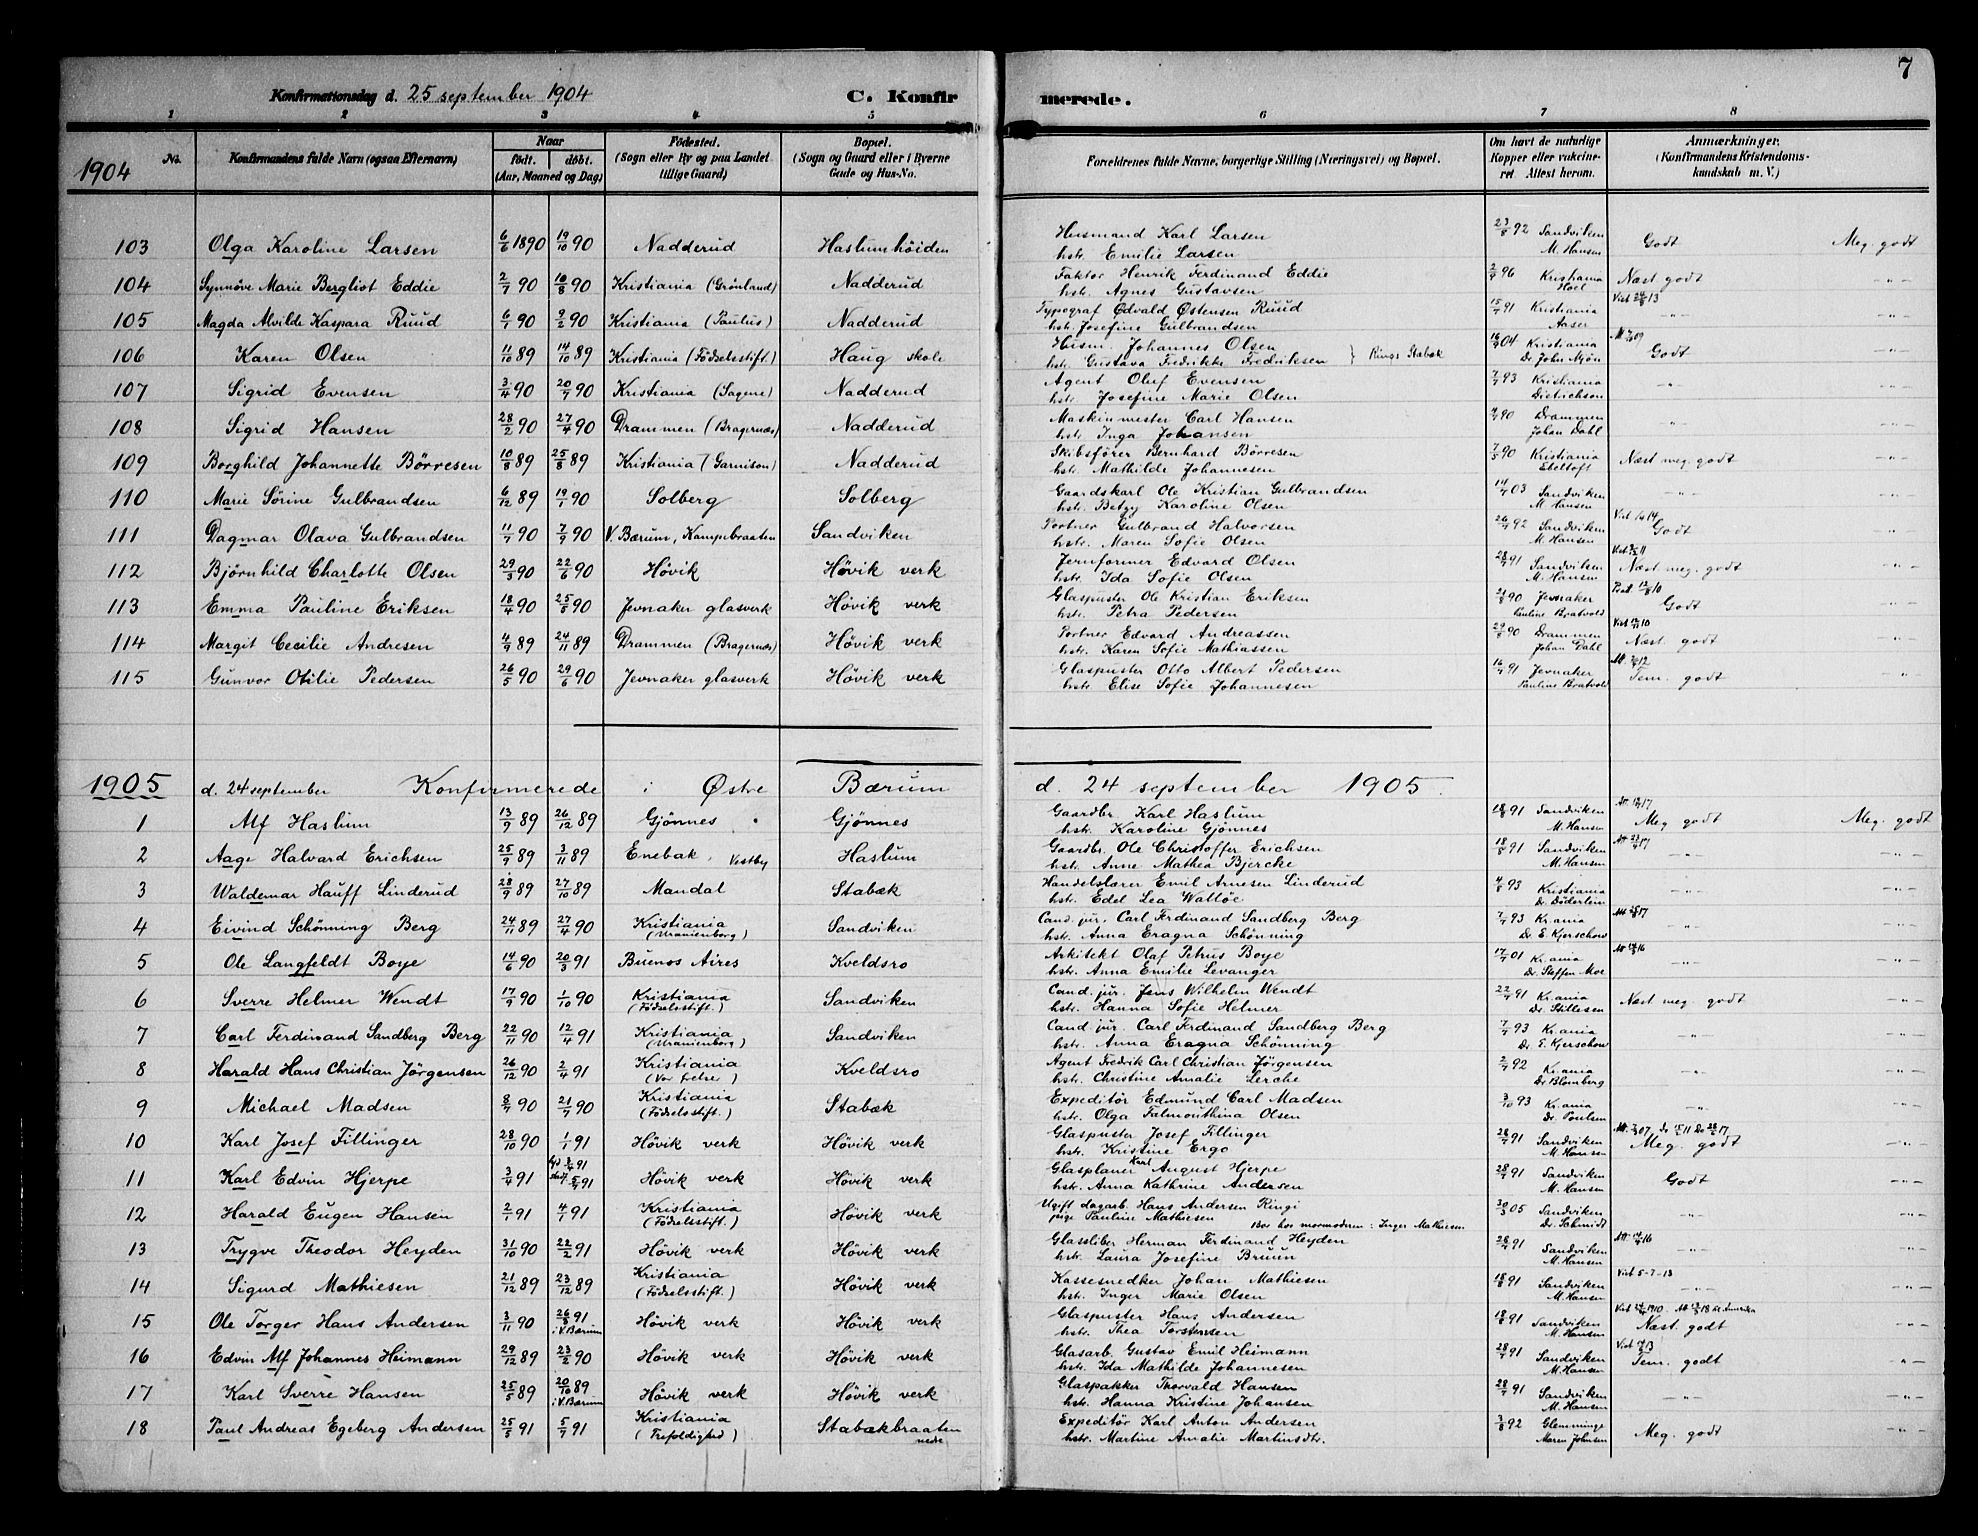 7
Konfirmationsdag d. 25 september 1904
C. Konfir merede.
1 2 3 4 5 6 7 8
1904
No.
Konfirmandens fulde Navn (ogsaa Efternavn)
Naar
født. døbt.
(Aar, Maaned og Dag)
Fødested.
(Sogn eller By og paa Landet
tillige Gaard)
Bopæl.
(Sogn og Gaard eller i Byerne
Gade og Hus-No.
Forældrenes fulde Navne, borgerlige Stilling (Næringsvei) og Bopæl.
Om havt de naturlige
Kopper eller vakcine-
ret. Attest herom.
Anmærkninger.
(Konfirmandens Kristendoms-
kundskab m. V.)
103 Olga Karoline Larsen 6/6 1890 19/10 90 Nadderud Haslumhöiden Husmand Karl Larsen 23/8 92 Sandviken
hstr. Emilie Larsen M. Hansen Godt Meg. godt
104 Synnöve Marie Bergliot Eddie 2/7 90 10/8 90 Kristiania (Grönland) Nadderud Faktor Henrik Ferdinand Eddie 2/9 96 Kristiania
hstr. Agnes Gustavsen Hoel Næst godt -"-
105 Magda Alvilde Kaspara Ruud 6/1 90 9/2 90 Kristiania (Paulus) Nadderud Typograf Edvald Østensen Ruud 15/9 91 Kristiania
hstr. Josefine Gulbrandsen Aaser -"- -"-
106 Karen Olsen 11/10 89 14/10 89 Kristiania (Födselsstift.) Haug skole Husm. Johannes Olsen 16/9 04 Kristiania
hstr. Gustava Fredrikke Fredriksen } Rings Stabæk Dr. John Mjön Godt -"-
107 Sigrid Evensen 3/4 90 20/7 90 Kristiania (Sagene) Nadderud Agent Oluf Evensen 7/7 93 Kristiania
hstr. Josefine Marie Olsen Dietrichson -"- -"-
108 Sigrid Hansen 28/2 90 27/4 90 Drammen (Bragernæs) Nadderud Maskinmester Carl Hansen 90 Drammen
hstr. Inga Johansen Johan Dahl -"- -"-
109 Borghild Johannette Börresen 10/8 89 25/8 89 Kristiania (Garnison) Nadderud Skibsförer Bernhard Börresen 7/5 90 Kristiania
hstr. Mathilde Johannesen Ebeltoft Næst meg. godt -"-
110 Marie Sörine Gulbrandsen 6/12 89 19/1 90 Solberg Solberg Gaardskarl Ole Kristian Gulbrandsen 14/9 03 Sandviken
hstr. Betzy Karoline Olsen M. Hansen -"- -"-
111 Dagmar Olava Gulbrandsen 11/7 90 7/9 90 V. Bærum, Kampebraaten Sandviken Portner Gulbrand Halvorsen 26/7 92 Sandviken
hstr. Maren Sofie Olsen M. Hansen Godt -"-
112 Björnhild Charlotte Olsen 29/3 90 22/6 90 Hövik Hövik verk Jernformer Edvard Olsen 28/9 91 Sandviken
hstr. Ida Sofie Olsen M. Hansen Næst meg. godt -"-
113 Emma Pauline Eriksen 18/4 90 25/5 90 Jevnaker glasverk Hövik verk Glaspuster Ole Kristian Eriksen 21/8 90 Jevnaker
hstr. Petra Pedersen Pauline Bratvold Godt -"-
114 Margit Cecilie Andresen 4/9 89 24/11 89 Drammen (Bragernæs) Hövik verk Portner Edvard Andreassen 29/8 90 Drammen
hstr. Karen Sofie Mathiassen Johan Dahl Næst. godt -"-
115 Gunvor Otilie Pedersen 26/5 90 29/6 90 Jevnaker glasverk Hövik verk Glaspuster Otto Albert Pedersen 16/7 91 Jevnaker
hstr. Elise Sofie Johannesen Pauline Bratvold Tem. godt -"-
1905 d. 24 september Konfirmerede i Østre Bærum d. 24 september 1905.
1 Alf Haslum 13/9 89 26/12 89 Gjönnes Gjönnes Gaardbr. Karl Haslum 18/8 91 Sandviken
hstr. Karoline Gjönnes M. Hansen Meg godt Meg. godt
2 Aage Halvard Erichsen 25/9 89 3/11 89 Enebak, Vestby Haslum Gaardbr. Ole Christoffer Erichsen 18/8 91 Sandviken
hstr. Anne Mathea Bjercke M. Hansen -"- -"-
3 Waldemar Hauff Linderud 28/9 89 27/10 89 Mandal Stabæk Handelslærer Emil Arnesen Linderud 4/8 93 Kristiania
hstr. Edel Lea Wattöe Dr. Döderlein -"- -"-
4 Eivind Schönning Berg 24/11 89 27/4 90 Kristiania (Uranienborg) Sandviken Cand. jur. Carl Ferdinand Sandberg Berg 7/7 93 Kr.ania
hstr. Anna Eragna Schönning Dr. E. Kjerschow -"- -"-
5 Ole Langfeldt Boye 14/6 90 20/3 91 Buenos Aires Kveldsro Arkitekt Olaf Petrus Boye 17/9 01 Kr.ania
hstr. Anna Emilie Levanger Dr. Steffen Moe -"- -"-
6 Sverre Helmer Wendt 17/9 90 1/10 90 Kristiania (Födselsstift.) Sandviken Cand. jur. Jens Wilhelm Wendt 22/9 91 Kr.ania
hstr. Hanna Sofie Helmer Dr. Stillesen Næst meg. godt -"-
7 Carl Ferdinand Sandberg Berg 22/11 90 12/4 91 Kristiania (Uranienborg) Sandviken Cand. jur. Carl Ferdinand Sandberg Berg 7/7 93 Kr.ania
hstr. Anna Eragna Schönning Dr. E. Kjerschow -"- -"-
8 Harald Hans Christian Jörgensen 26/12 90 2/4 91 Kristiania (Vor frelser) Kveldsro Agent Fredrik Carl Christian Jörgensen 2/7 92 Kr.ania
hstr. Christine Amalie Lerche Dr. Blomberg -"- -"-
9 Michael Madsen 8/7 90 21/7 90 Kristiania (Födselsstift.) Stabæk Expeditör Edmund Carl Madsen 3/10 93 Kr.ania
hstr. Olga Falmouthina Olsen Dr. Poulsen -"- -"-
10 Karl Josef Fillinger 28/10 90 1/1 91 Hövik verk Hövik verk Glaspuster Josef Fillinger 28/7 91 Sandviken
hstr. Kristine Ergo M. Hansen Meg. godt -"-
11 Karl Edvin Hjerpe 3/4 91 91 Hövik verk Hövik verk Glasplaner Karl August Hjerpe 28/7 91 Sandviken
hstr. Anna Kathrine Andersen M. Hansen Godt -"-
12 Harald Eugen Hansen 2/1 91 4/1 91 Kristiania (Födselsstift.) Hövik verk Ugift dagarb. Hans Andersen Ringi 30/3 05 Sandviken
pige Pauline Mathiesen Bor hos mormoderen: Inger Mathiesen Dr. Schmidt -"- -"-
13 Trygve Theodor Heyden 31/10 90 22/2 91 Hövik verk Hövik verk Glassliber Herman Ferdinand Heyden 28/7 91 Sandviken
hstr. Laura Josefine Bruun M. Hansen -"- -"-
14 Sigurd Mathiesen 21/12 89 23/12 89 Kristiania (Födselsstift.) Hövik verk Kassesnedker Johan Mathiesen 18/8 91 Sandviken
hstr. Inger Marie Olsen M. Hansen Vist 5-7-13 -"- -"-
15 Ole Torger Hans Andersen 3/11 90 26/8 91 i V. Bærum Hövik verk Hövik verk Glaspuster Hans Andersen 18/8 91 Sandviken
hstr. Thea Torstensen M. Hansen Næst. godt -"-
16 Edvin Alf Johannes Heimann 29/12 89 23/2 90 Hövik verk Hövik verk Glasarb. Gustav Emil Heimann 28/7 91 Sandviken
hstr. Ida Mathilde Johannesen M. Hansen Tem. godt -"-
17 Karl Sverre Hansen 25/5 89 20/10 89 i V. Bærum Hövik verk Hövik verk Glaspakker Thorvald Hansen 28/7 91 Sandviken
hstr. Hanna Kristine Johansen M. Hansen -"- -"-
18 Paul Andreas Egeberg Andersen 25/5 91 5/7 91 Kristiania (Trefoldighed) Stabækbraaten nede Expeditör Karl Anton Andersen 3/8 92 Glemminge
hstr. Martine Amalie Martinsdtr. Maren Johnsen Meg. godt -"-